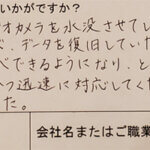 いかがですか？
オカメラを水没させてい
、データを復旧していた
べできるようになり、と
つ迅速に対応してくだ
た。
会社名またはご職業